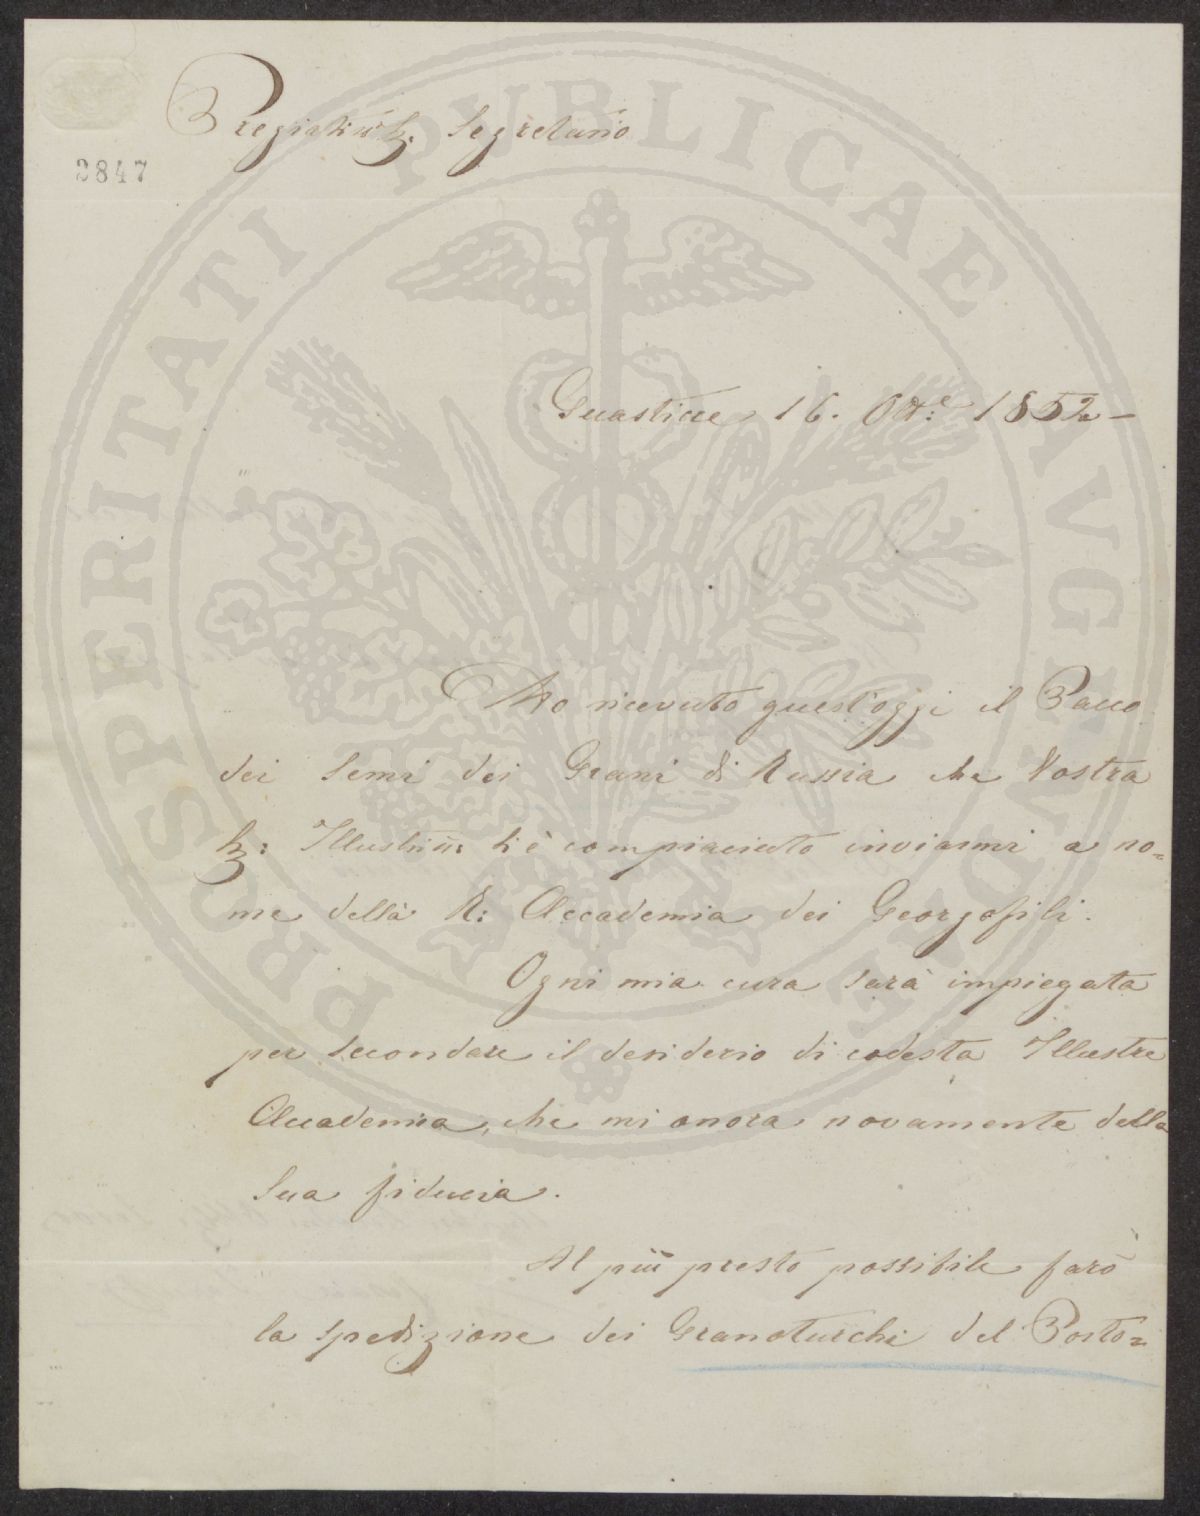 Pregiatis:º Sig. Segretario
2847
Guasticce 16. Ott:e 1852 –
Ho ricevuto quest'oggi il Pacco
dei Semi dei Grani di Russia che Vostra
Sig: Illustris: si è compiaciuto inviarmi a no=
me della R: Accademia dei Georgofili.
Ogni mia cura sarà impiegata
per secondare il desiderio di codesta Illustre
Accademia, che mi onora novamente della
Sua fiducia.
Al più presto possibile farò
la spedizione dei Granoturchi del Porto=
PROSPERITATI PUBLICAE AVGENDAE